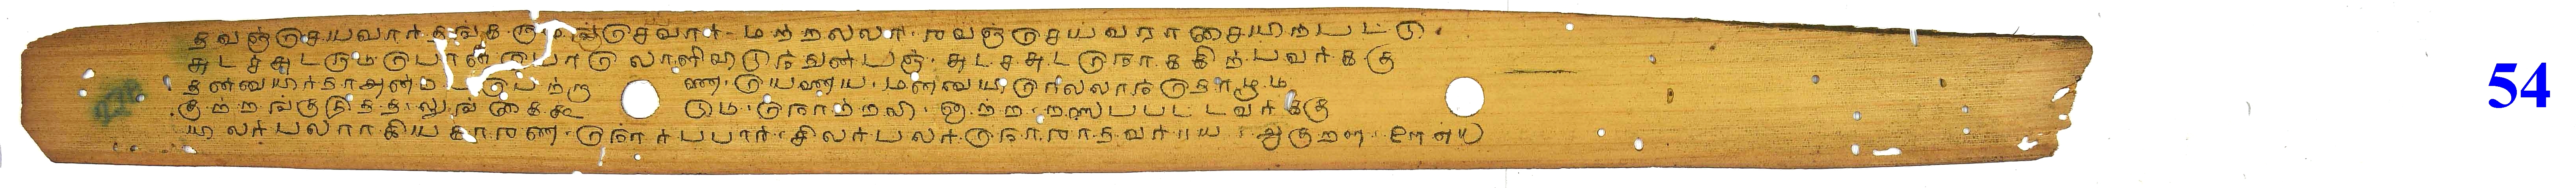 தவஞ்செயவார் தங்கருமஞ்செவார் மற்றலலார் அவஞ்செய்வாராசையுறபட்டு
சுடச்சுடரும்பொன்போலொளிவிடுந்துன்பஞ் சுடச்சுடநோககிற்பவர்க்கு
தன்னுயிர்தாஅன்ம பெற்றா ணை யேணைய மன்னுயிரெல்லாந்தொழும்
கூற்றங்குதித்தலுங்கைகூ டும் நோற்றலி னாற்ற றலைபபட்டவர்க்கு
யிலர்பலராகியகாரண நோர்பபார் சிலர்பலர்நோலாதவர் ய ஆகுறள ௨௱௭௰
54